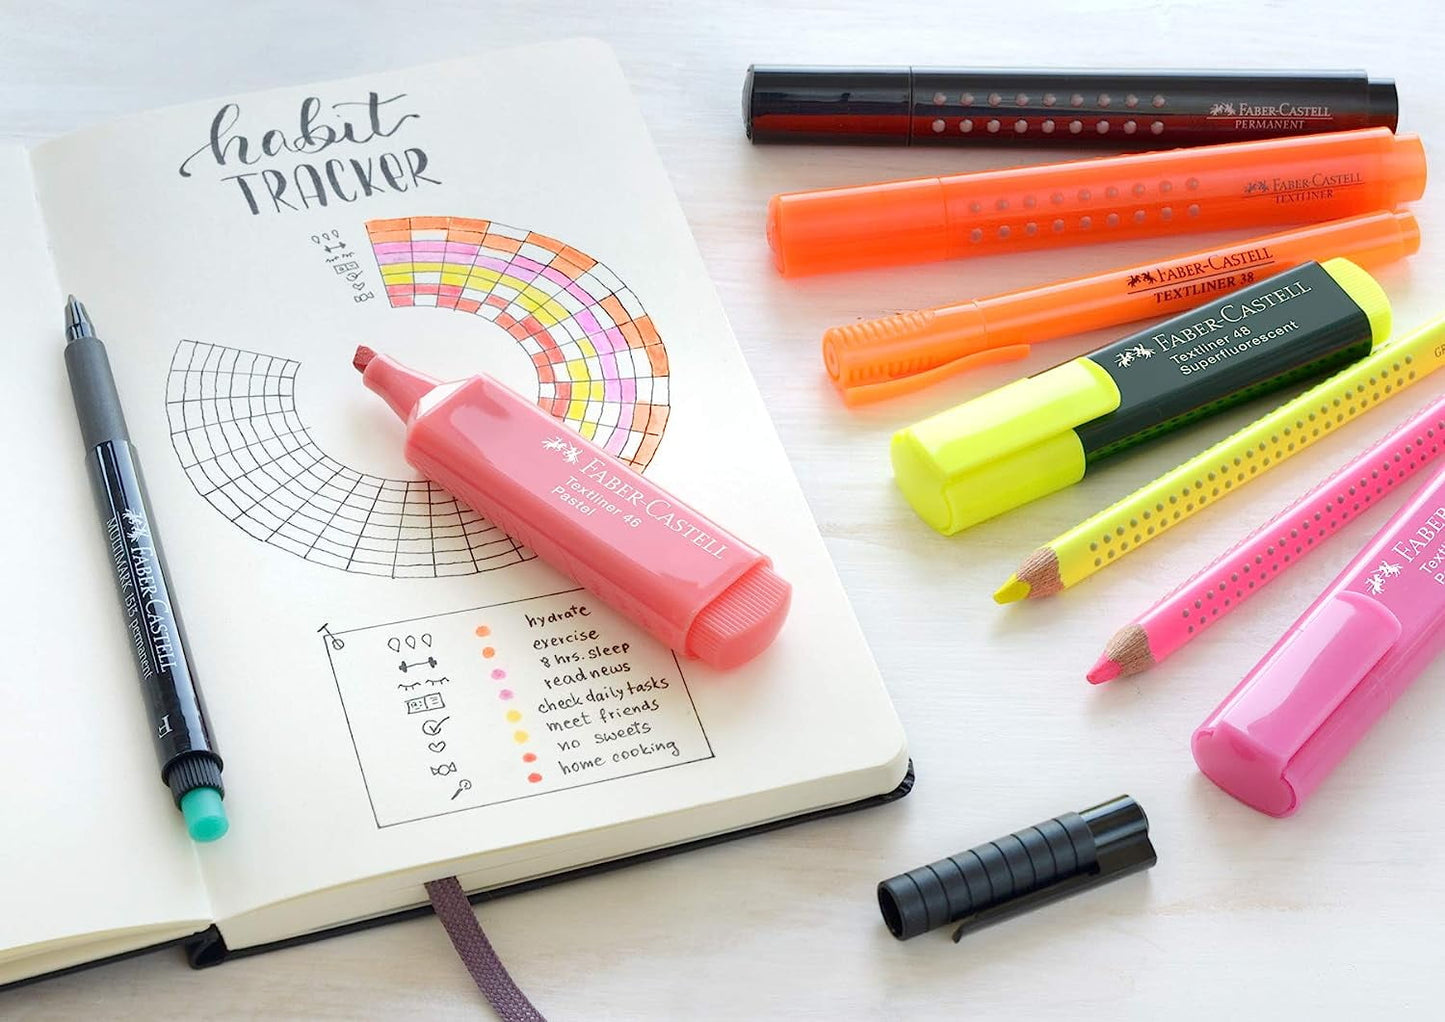 habit
TRACKER
hydrate
exercise
8 hrs. sleep
read news
check daily tasks
meet friends
no sweets
home cooking
FABER-CASTELL
MULTIMARK 1513 permanent
F
FABER-CASTELL
Textliner 46
Pastel
FABER-CASTELL
PERMANENT
FABER-CASTELL
TEXTLINER
FABER-CASTELL
TEXTLINER 38
FABER-CASTELL
Textliner 48
Superfluorescent